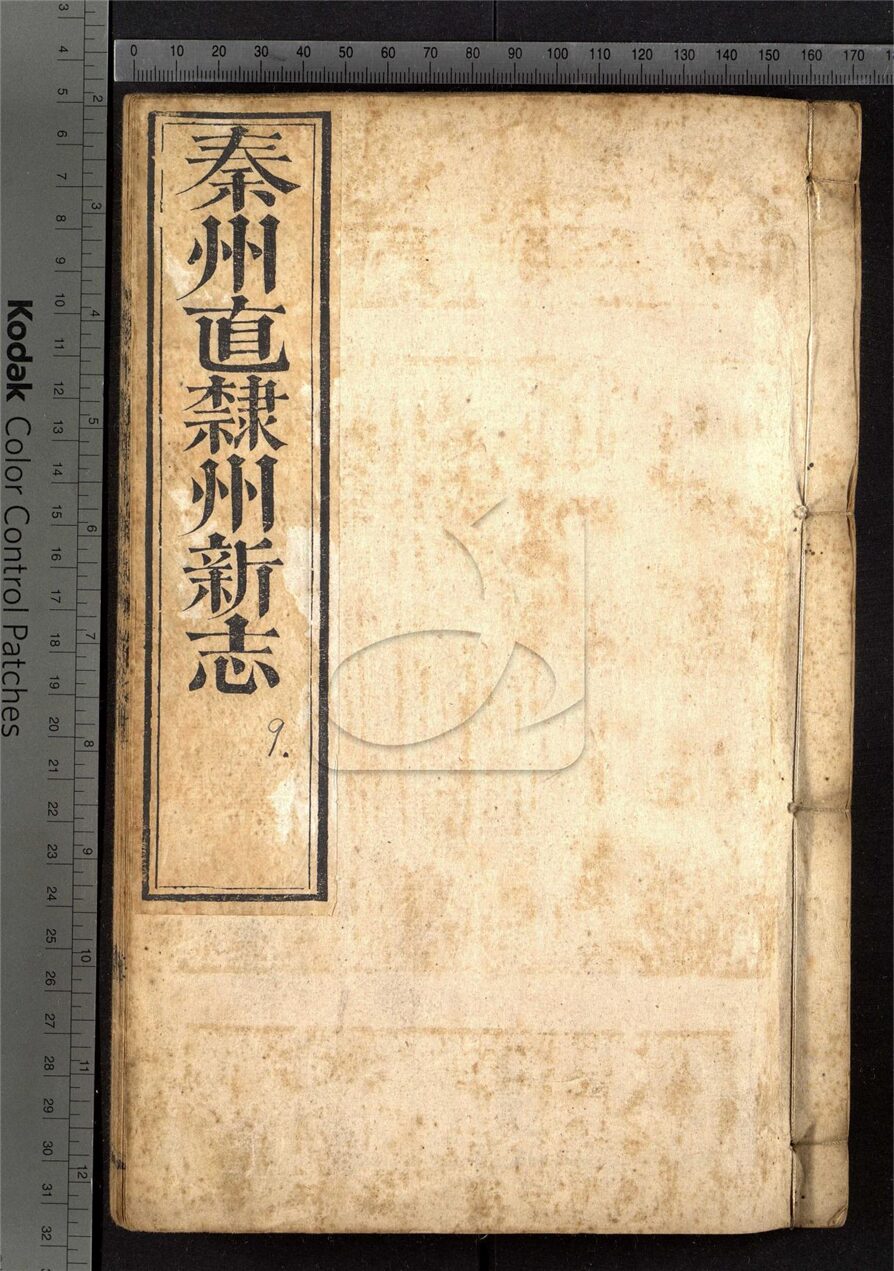 秦州直隸州新志
9.
Kodak Color Control Patches
0 10 20 30 40 50 60 70 80 90 100 110 120 130 140 150 160 170
3 4 5 6 7 8 9 10 11 12 13 14 15 16 17 18 19 20 21 22 23 24 25 26 27 28 29 30 31 32
2 3 4 5 6 7 8 9 10 11 12